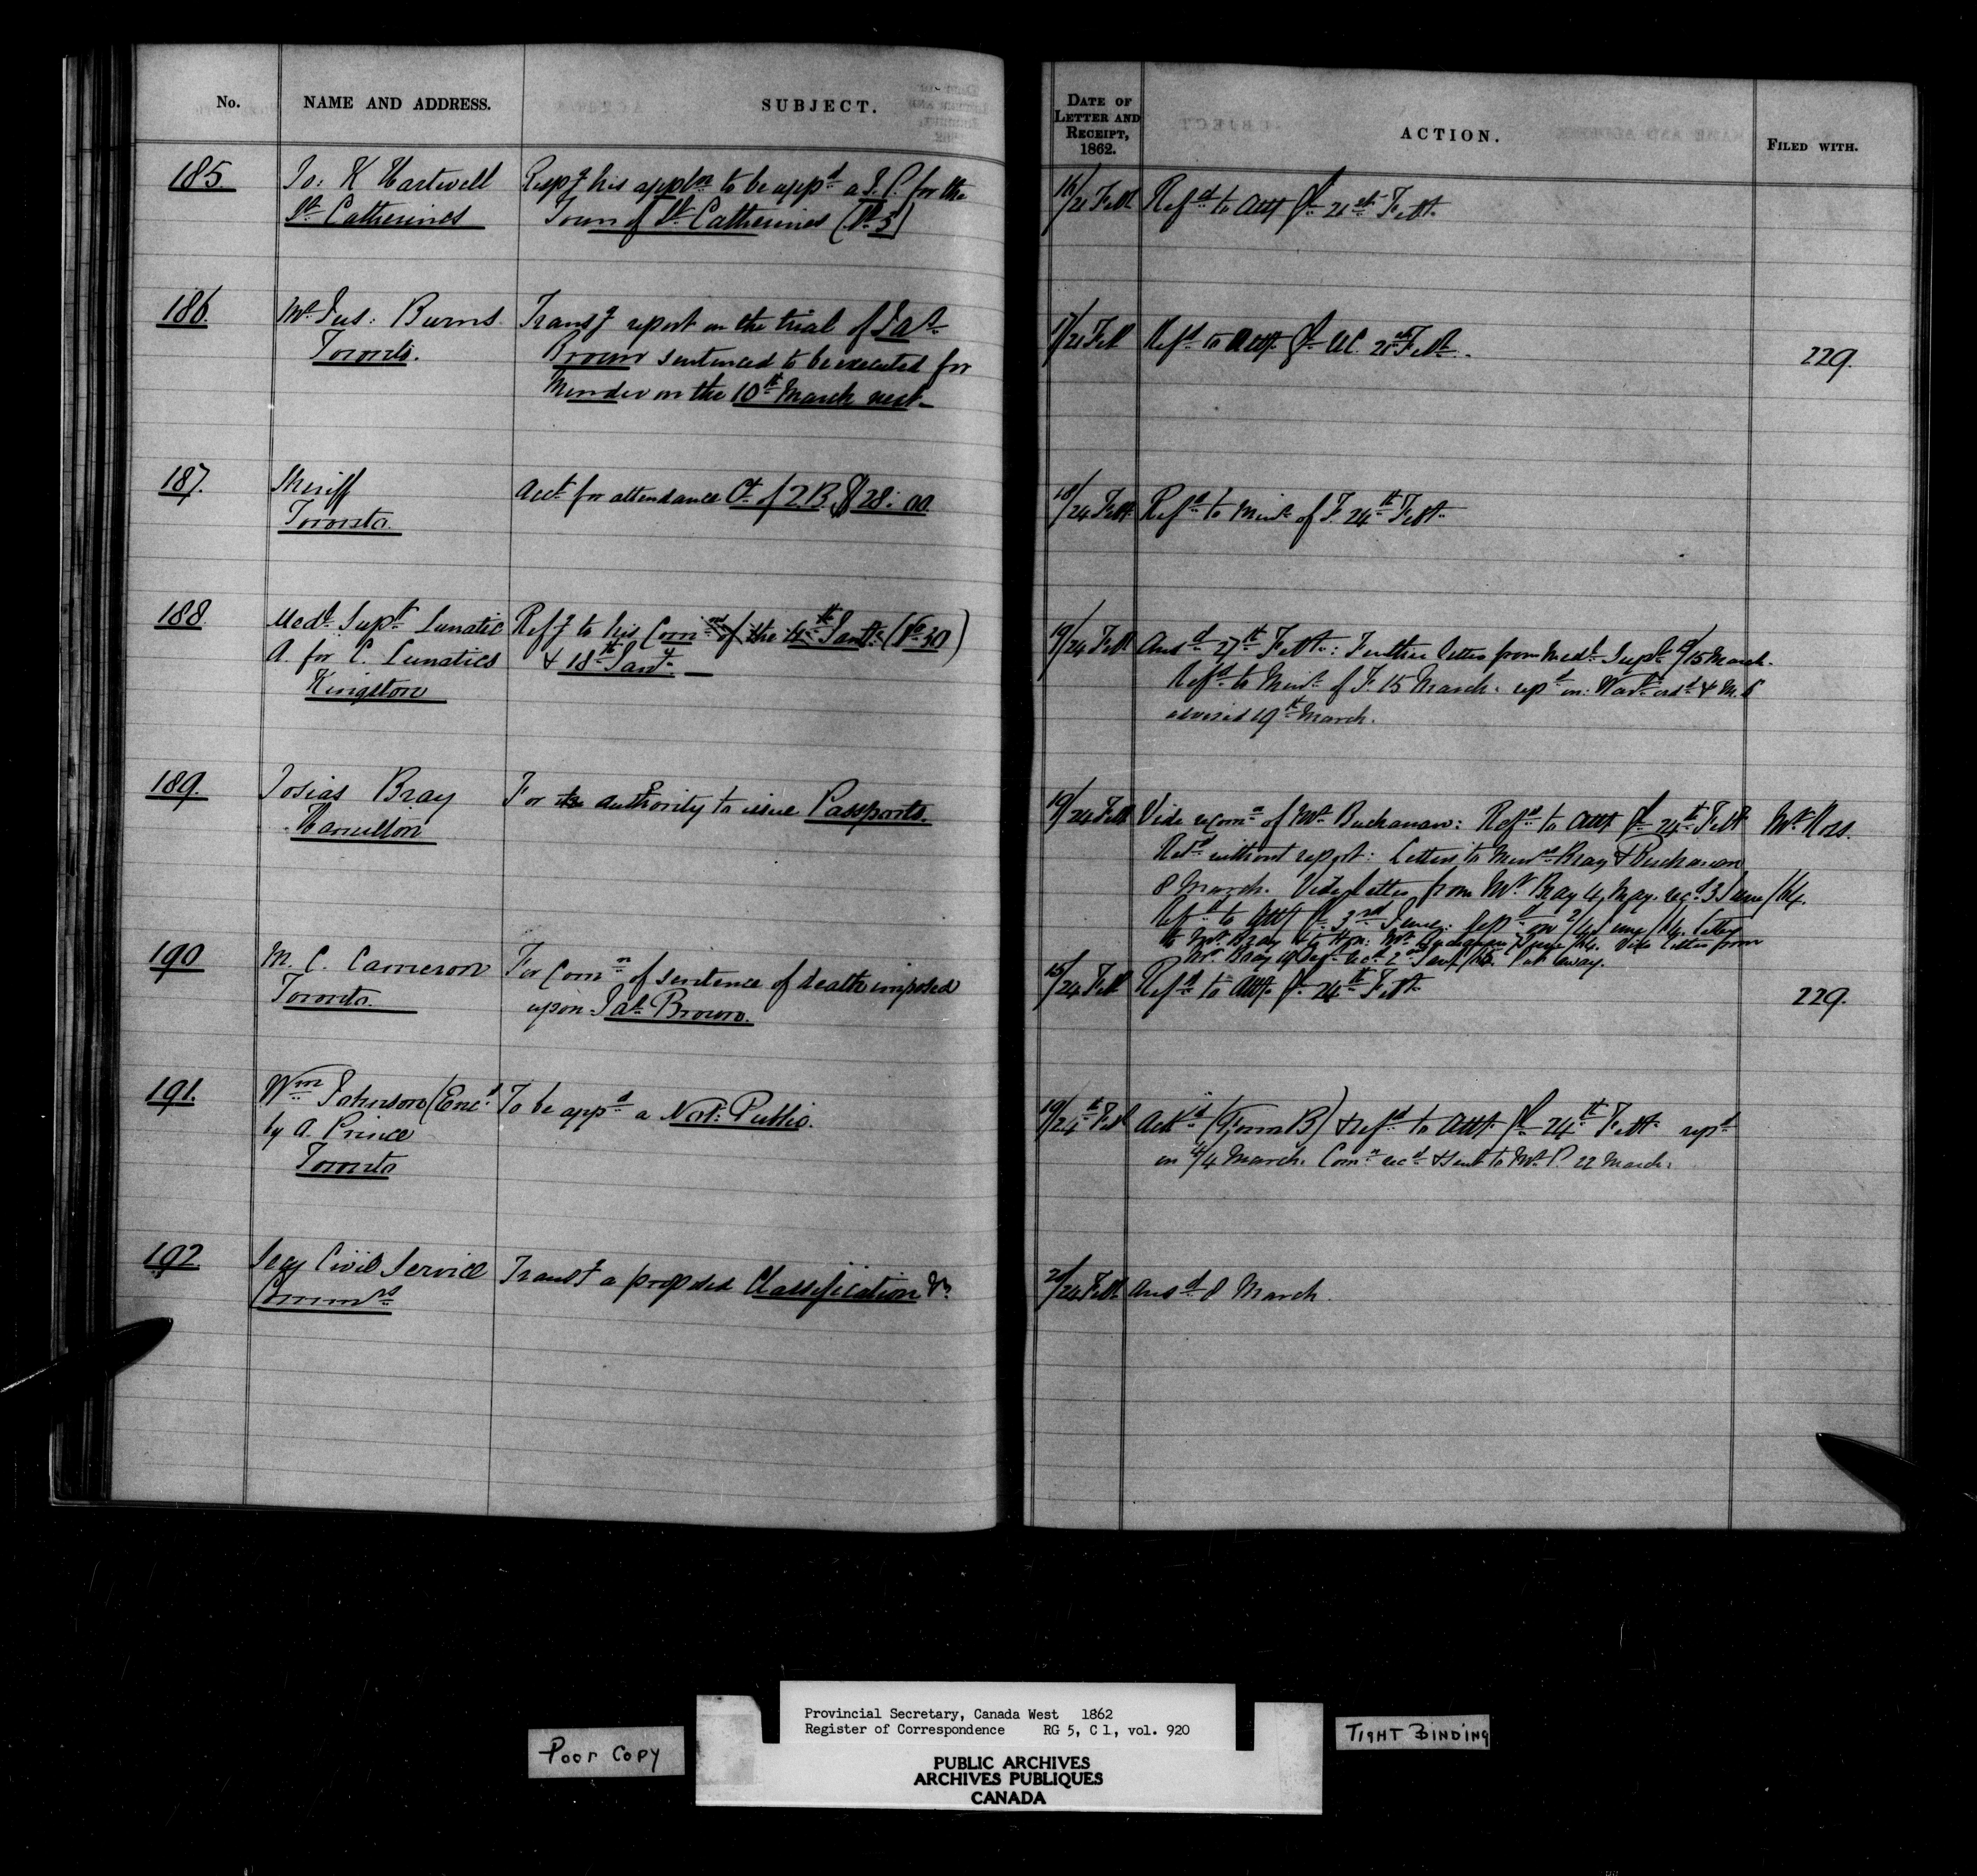 No.
NAME AND ADDRESS.
SUBJECT.
DATE OF LETTER AND RECEIPT, 1862.
ACTION.
FILED WITH.
185.
Jo: K Hartwell
St Catherines
Respg his appln to be appd a J. P. for the
Town of St. Catherines
16/21 Feby
Refd to Atty Gl 21st Feby
186.
Mr Jus: Burns
Toronto.
Transg report on the trial of Jas
Brown sentenced to be executed for
Murder on the 10th March next
17/21 Feb
Refd to Atty Gl UC. 21st Feby.
229.
187.
Sheriff
Toronto.
Acct for attendance Ct of Q.B. $28.00
18/24 Feby
Refd to Minr of F. 24th Feby
188.
Medl Supt Lunatic
A. for C. Lunatics
Kingston
Refg to his Comn of the 4th Jany (No 30)
& 18th Jany.
19/24 Feb
Ansd 27th Feby: Further letter from Medl Supt /15 March.
Refd to Minr of F. 15 March. repd on. Wart issd & M.S
advised 19th March.
189.
Josias Bray
Hamilton
For authority to issue Passports.
19/24 Feb
Vide recomn of Mr Buchanan: Refd to Atty Gl 24th Feby
Mr Ross.
Retd without report: Letters to Messrs Bray & Buchanan
8 March. Vide letter from Mr Bray 4 May. recd 3 June/64.
Refd to Atty Gl 3rd June. Repd on 2/4 June/64. letter
to Mr Bray & to Hon: Mr Buchanan 7 June/64. Vide letter from
Mr Bray 19 Sept. recd 2nd Put away.
190
M. C. Cameron
Toronto.
For Comn of sentence of death imposed
upon Jas Brown.
15/24 Feb
Refd to Atty Gl 24th Feby
229.
191.
Wm Johnson (Encd
by A. Prince
Toronto
To be appd a Not: Public.
19/24th Feb
Ackd (Form B) & refd to Atty Gl 24th Feby repd
on 4/4 March. Comn recd & sent to Mr P. 22 March.
192.
Secy Civil Service
Commrs
Transg a proposed Classification &c
20/24 Feb
Ansd 8 March.
Poor Copy
Provincial Secretary, Canada West 1862
Register of Correspondence RG 5, C 1, vol. 920
PUBLIC ARCHIVES
ARCHIVES PUBLIQUES
CANADA
TIGHT BINDING